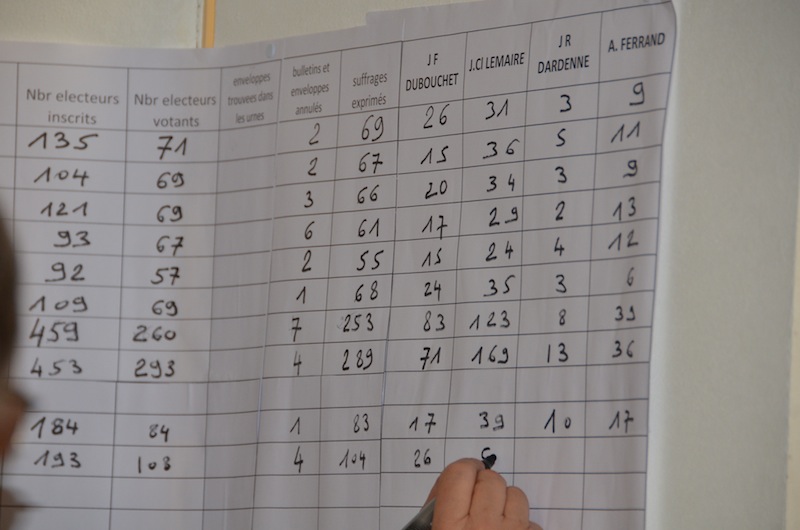 Nbr electeurs inscrits Nbr electeurs votants enveloppes trouvees dans les urnes bulletins et enveloppes annulés suffrages exprimés J F DUBOUCHET J.Cl LEMAIRE J R DARDENNE A. FERRAND
135 71 2 69 26 31 3 9
104 69 2 67 15 36 5 11
121 69 3 66 20 34 3 9
93 67 6 61 17 29 2 13
92 57 2 55 15 24 4 12
109 69 1 68 24 35 3 6
459 260 7 253 83 123 8 39
453 293 4 289 71 169 13 36
184 84 1 83 17 39 10 17
193 108 4 104 26